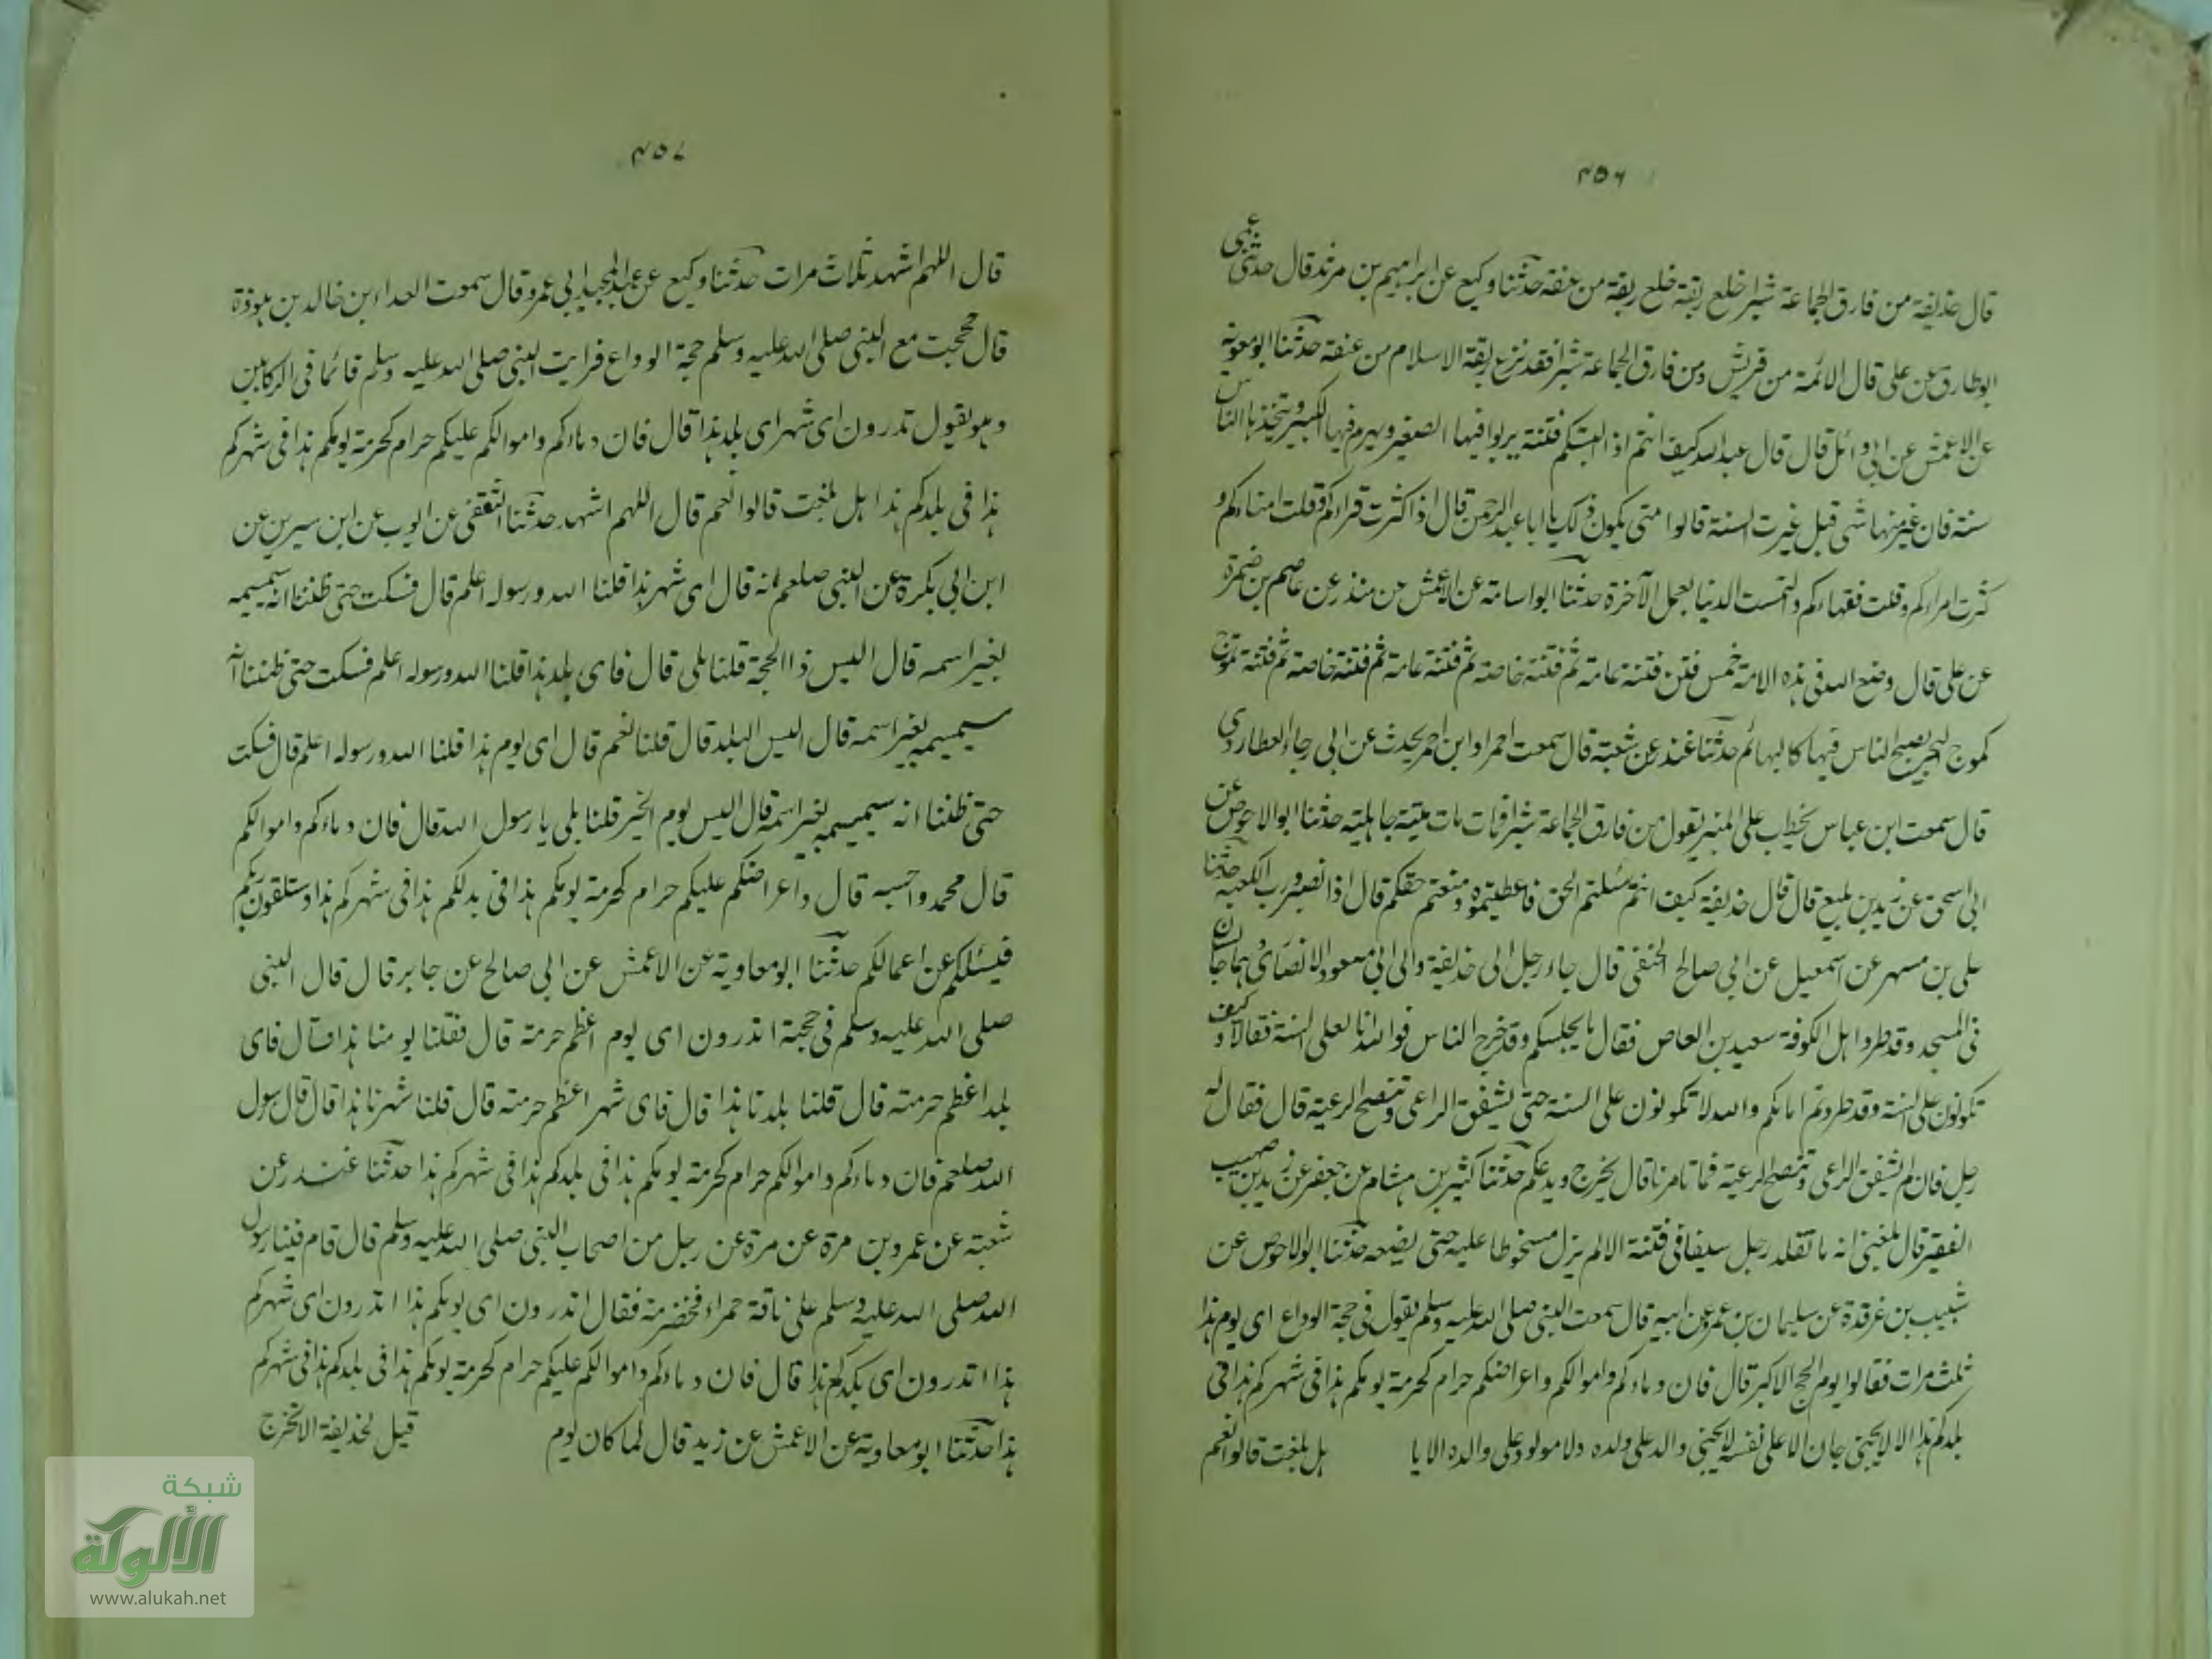 ٤٥٦
قال حذيفة من فارق الجماعة شبرا خلع ربقة خلع ربقة من عنقه حدثنا وكيع عن ابراهيم بن مرثد قال حدثنى عمى
ابو طارق عن على قال الائمة من قريش ومن فارق الجماعة شبرا فقد نزع ربقة الاسلام من عنقه حدثنا ابو معوية
عن الاعمش عن ابى وائل قال قال عبد الله كيف انتم اذا لبستكم فتنة يربوا فيها الصغير ويهرم فيها الكبير ويتخذها الناس
سنة فان غير منها شى قيل غيرت السنة قالوا متى يكون ذلك يا ابا عبد الرحمن قال اذا كثرت قراءكم وقلت امناءكم و
كثرت امراءكم وقلت فقهاءكم والتمست الدنيا بعمل الآخرة حدثنا ابو اسامة عن الاعمش عن منذر عن عاصم بن ضمرة
عن على قال وضع الله فى هذه الامة خمس فتن فتنة عامة ثم فتنة خاصة ثم فتنة عامة ثم فتنة خاصة ثم فتنة تموج
كموج البحر يصبح الناس فيها كالبهائم حدثنا غندر عن شعبة قال سمعت احمر او ابن احمر يحدث عن ابى رجاء العطاردى
قال سمعت ابن عباس يخطب على المنبر يقول من فارق الجماعة شبرا فمات مات ميتة جاهلية حدثنا ابو الاحوص عن
ابى اسحق عن زيد بن يثيع قال قال حذيفة كيف انتم سئلتم الحق فاعطيتموه ومنعتم حقكم قال اذا نصبر ورب الكعبة حدثنا
على بن مسهر عن اسمعيل عن ابى صالح الحنفى قال جاء رجل الى حذيفة والى ابى مسعود الانصارى وهما جالسان
فى المسجد وقد طردوا اهل الكوفة سعيد بن العاص فقال ما يجلسكم وقد خرج الناس فوالله انا لعلى السنة فقالا وكيف
تكونون على السنة وقد طردتم امامكم والله لا تكونون على السنة حتى يشفق الراعى وتنصح الرعية قال فقال له
رجل فان لم يشفق الراعى وتنصح الرعية فما تامرنا قال يخرج ويدعكم حدثنا كثير بن هشام عن جعفر عن يزيد بن صهيب
الفقير قال بلغنى انه ما تقلد رجل سيفا فى فتنة الا لم يزل مسخوطا عليه حتى يضعه حدثنا ابو الاحوص عن
شبيب بن غرقدة عن سليمان بن عمرو عن ابيه قال سمعت النبى صلى الله عليه وسلم يقول فى حجة الوداع اى يوم هذا
ثلث مرات فقالوا يوم الحج الاكبر قال فان دماءكم واموالكم واعراضكم حرام كحرمة يومكم هذا فى شهركم هذا فى
بلدكم هذا الا لا يجنى جان الا على نفسه لا يجنى والد على ولده ولا مولود على والده الا يا هل بلغت قالوا نعم
٤٥٧
قال اللهم اشهد ثلاث مرات حدثنا وكيع عن عبد المجيد ابى عمرو قال سمعت العداء بن خالد بن هوذة
قال حججت مع النبى صلى الله عليه وسلم حجة الوداع فرايت النبى صلى الله عليه وسلم قائما فى الركابين
وهو يقول تدرون اى شهر اى بلد هذا قال فان دماءكم واموالكم عليكم حرام كحرمة يومكم هذا فى شهركم
هذا فى بلدكم هذا هل بلغت قالوا نعم قال اللهم اشهد حدثنا الثقفى عن ايوب عن ابن سيرين عن
ابن ابى بكرة عن النبى صلعم انه قال اى شهر هذا قلنا الله ورسوله اعلم قال فسكت حتى ظننا انه سيسميه
بغير اسمه قال اليس ذا الحجة قلنا بلى قال فاى بلد هذا قلنا الله ورسوله اعلم فسكت حتى ظننا انه
سيسميه بغير اسمه قال اليس البلد قال قلنا نعم قال اى يوم هذا قلنا الله ورسوله اعلم قال فسكت
حتى ظننا انه سيسميه بغير اسمه قال اليس يوم النحر قلنا بلى يا رسول الله قال فان دماءكم واموالكم
قال محمد واحسبه قال واعراضكم عليكم حرام كحرمة يومكم هذا فى بدلكم هذا فى شهركم هذا وستلقون ربكم
فيسئلكم عن اعمالكم حدثنا ابو معاوية عن الاعمش عن ابى صالح عن جابر قال قال النبى
صلى الله عليه وسلم فى حجة اتدرون اى يوم اعظم حرمة قال فقلنا يومنا هذا قال فاى
بلد اعظم حرمته قال قلنا بلدنا هذا قال فاى شهر اعظم حرمته قال قلنا شهرنا هذا قال قال رسول
الله صلعم فان دماءكم واموالكم حرام كحرمة يومكم هذا فى بلدكم هذا فى شهركم هذا حدثنا غندر عن
شعبة عن عمرو بن مرة عن مرة عن رجل من اصحاب النبى صلى الله عليه وسلم قال قام فينا رسول
الله صلى الله عليه وسلم على ناقة حمراء مخضرمة فقال اتدرون اى يومكم هذا اتدرون اى شهركم
هذا اتدرون اى بلدكم هذا قال فان دماءكم واموالكم عليكم حرام كحرمة يومكم هذا فى بلدكم هذا فى شهركم
هذا حدثنا ابو معاوية عن الاعمش عن زيد قال لما كان يوم قيل لحذيفة الا تخرج
شبكة
الألوكة
www.alukah.net